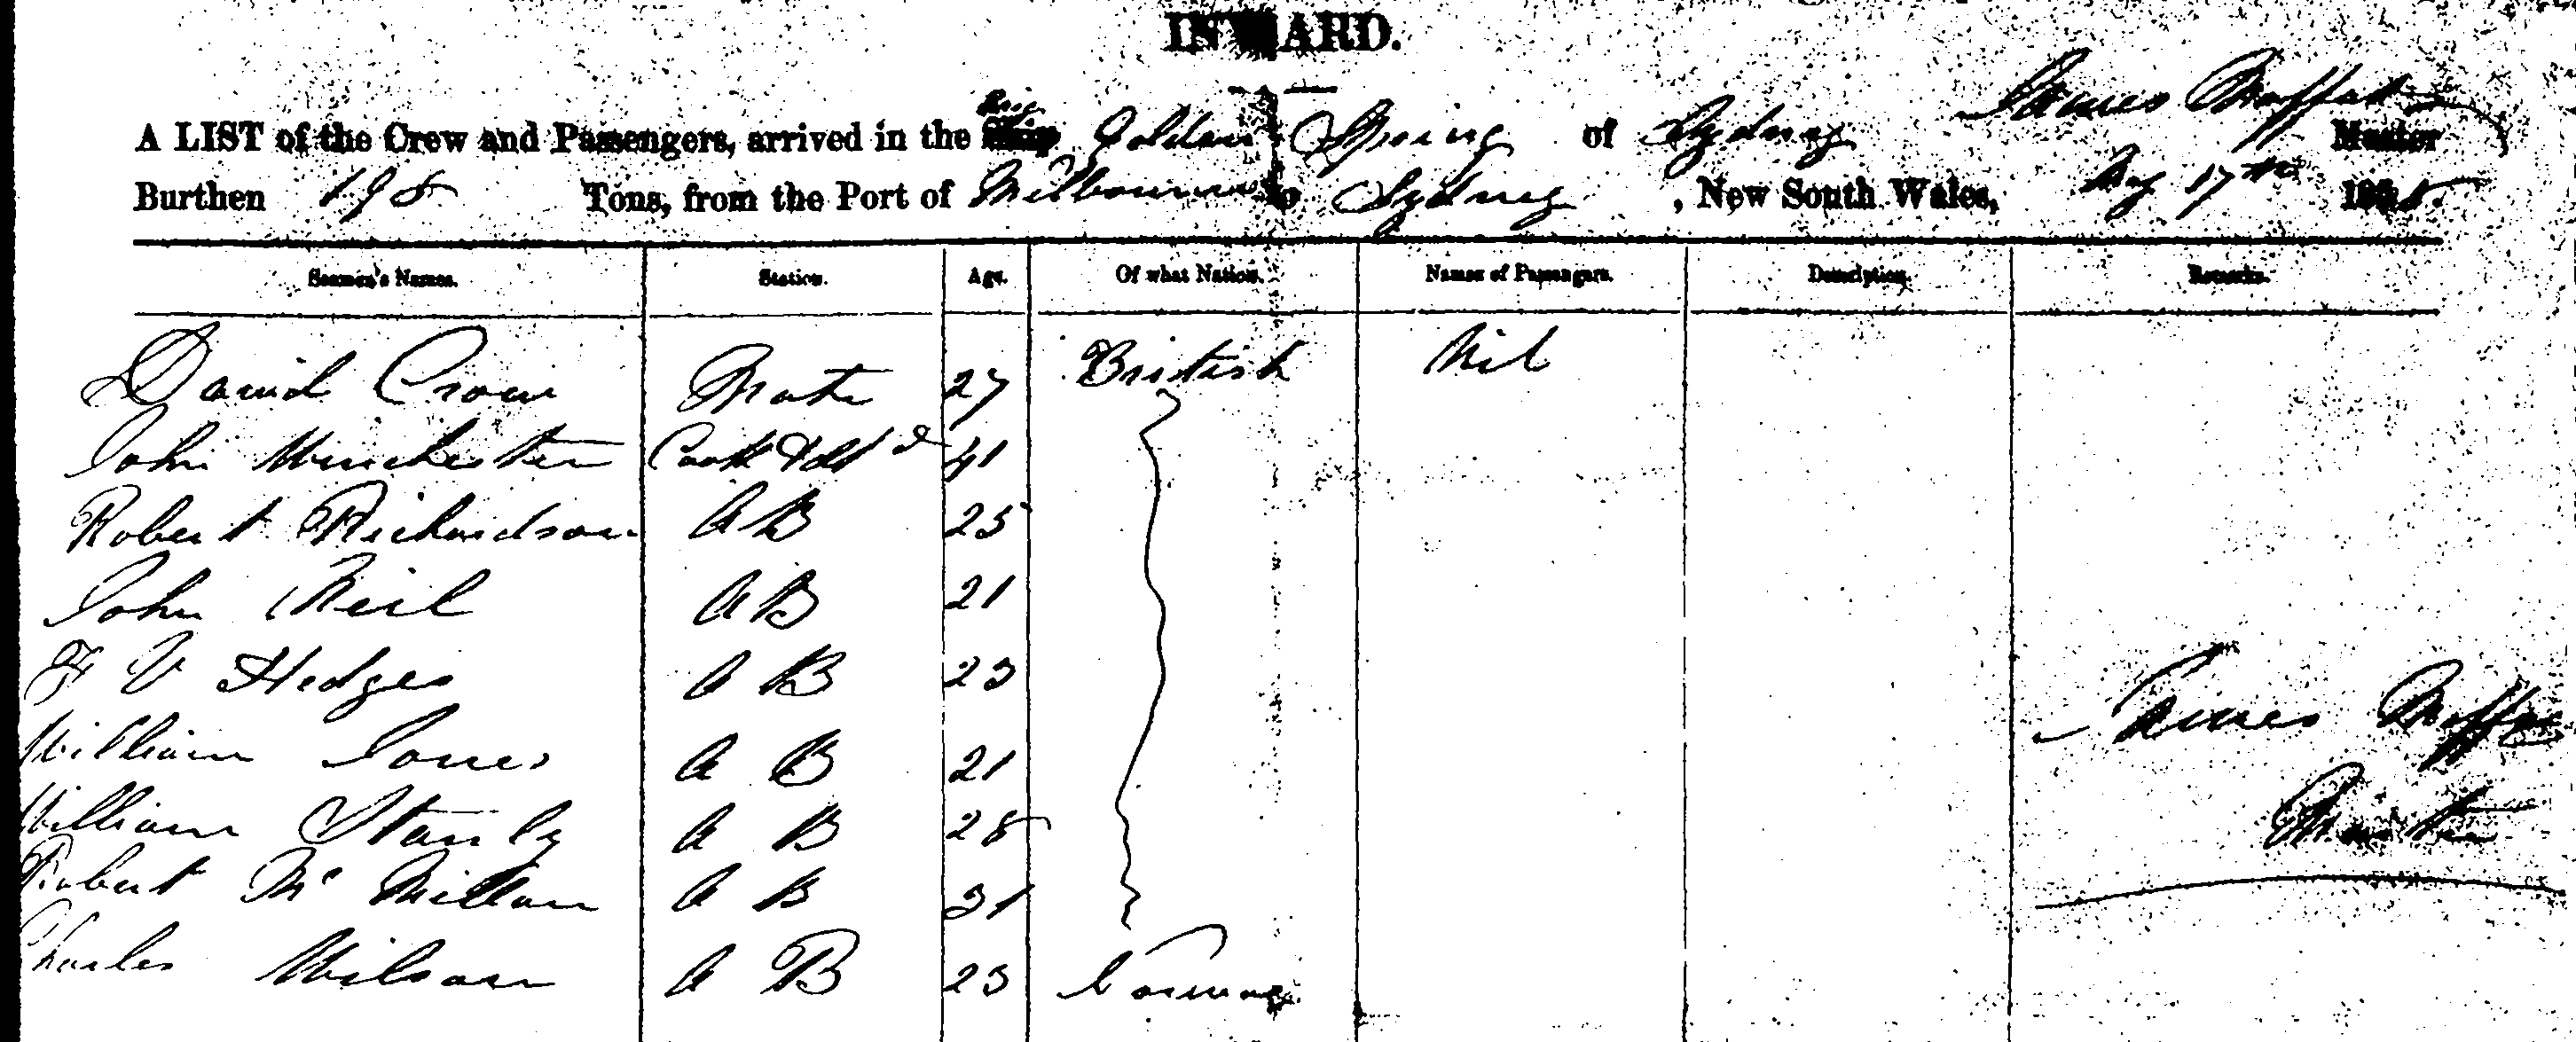 INWARD.
A LIST of the Crew and Passengers, arrived in the Brig Golden Spring of Sydney James Moffat Master
Burthen 198 Tons, from the Port of Melbourne to Sydney, New South Wales, 17th 185
Seamen's Names. Station. Age. Of what Nation. Names of Passengers. Description. Remarks.
David Crow Mate 27 British Nil
John Winchester Cook & Std 41
Robert Richardson A B 25
John Neil A B 21
F V Hedges A B 23
William Jones A B 21
William Stanly A B 28
Robert Mc Millan A B 31
Charles Wilson A B 23 Norway
James Moffat
Master